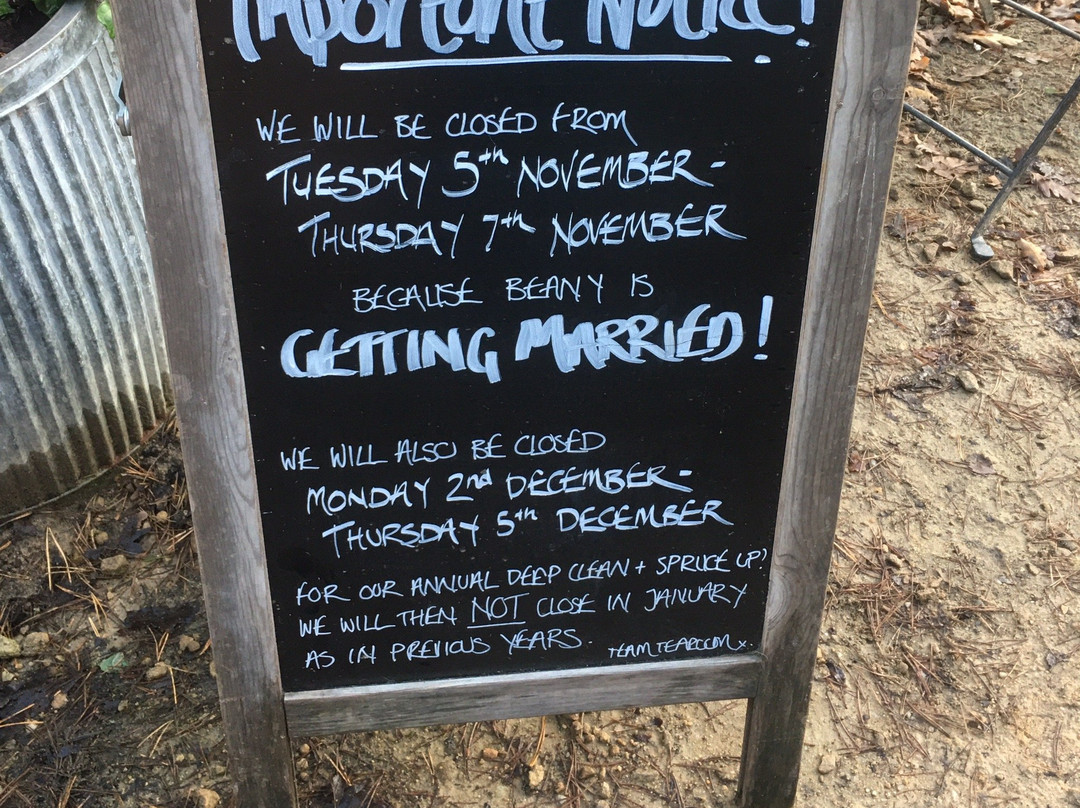 Important Notice!
WE WILL BE CLOSED FROM
TUESDAY 5th NOVEMBER -
THURSDAY 7th NOVEMBER
BECAUSE BEANY IS
GETTING MARRIED!
WE WILL ALSO BE CLOSED
MONDAY 2nd DECEMBER -
THURSDAY 5th DECEMBER
FOR OUR ANNUAL DEEP CLEAN + SPRUCE UP!
WE WILL THEN NOT CLOSE IN JANUARY
AS IN PREVIOUS YEARS.
TEAM TEAROOM X.